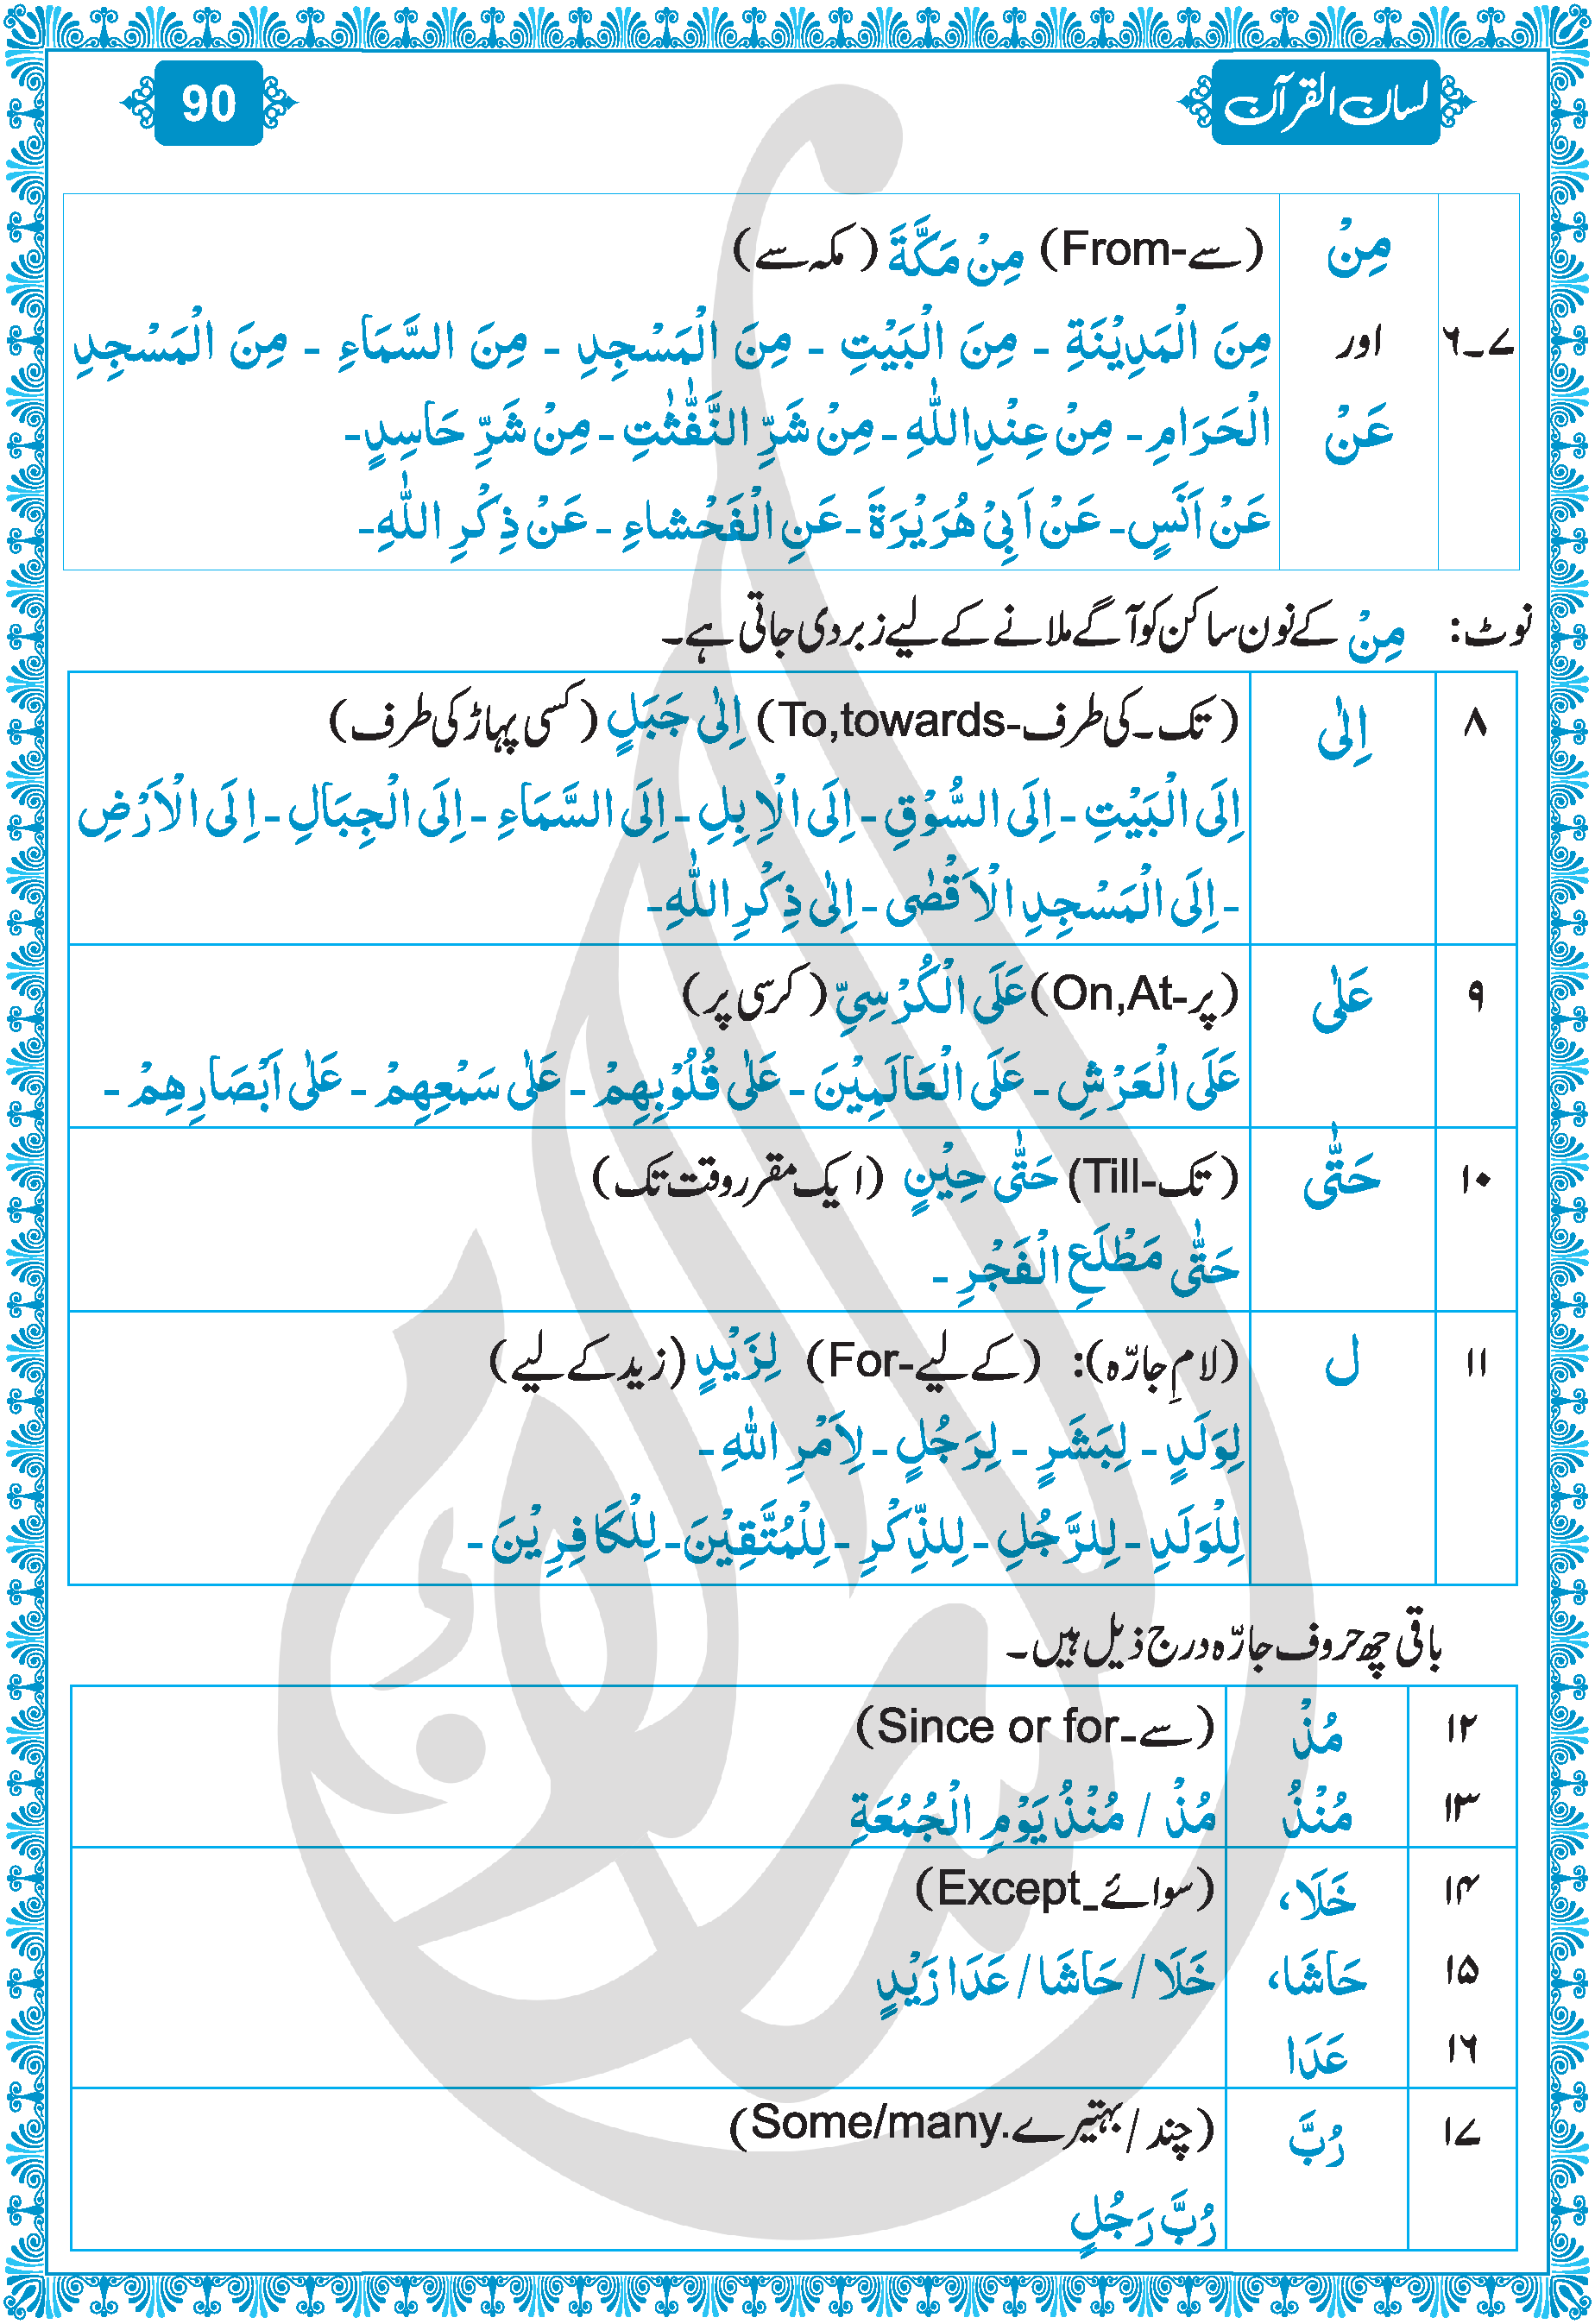 لسان القرآن
90
۶۔۷ مِنْ اور عَنْ
(سے-From) مِنْ مَكَّةَ (مکہ سے)
مِنَ الْمَدِيْنَةِ - مِنَ الْبَيْتِ - مِنَ الْمَسْجِدِ - مِنَ السَّمَاءِ - مِنَ الْمَسْجِدِ
الْحَرَامِ - مِنْ عِنْدِاللّٰهِ - مِنْ شَرِّ النَّفّٰثٰتِ - مِنْ شَرِّ حَاسِدٍ-
عَنْ اَنَسٍ- عَنْ اَبِیْ هُرَيْرَةَ-عَنِ الْفَحْشاءِ - عَنْ ذِكْرِ اللّٰهِ-
نوٹ: مِنْ کے نون ساکن کو آگے ملانے کے لیے زبر دی جاتی ہے۔
۸ اِلٰی (تک۔کی طرف-To,towards) اِلٰی جَبَلٍ (کسی پہاڑ کی طرف)
اِلَی الْبَيْتِ - اِلَی السُّوْقِ - اِلَی الْاِبِلِ - اِلَی السَّمَاءِ - اِلَی الْجِبَالِ - اِلَی الْاَرْضِ
- اِلَی الْمَسْجِدِ الْاَقْصٰی - اِلٰی ذِكْرِ اللّٰهِ-
۹ عَلٰی (پر-On,At) عَلَی الْكُرْسِیِّ (کرسی پر)
عَلَی الْعَرْشِ - عَلَی الْعَالَمِيْنَ - عَلٰی قُلُوْبِهِمْ - عَلٰی سَمْعِهِمْ - عَلٰی اَبْصَارِهِمْ -
۱۰ حَتّٰی (تک-Till) حَتّٰی حِيْنٍ (ایک مقرر وقت تک)
حَتّٰی مَطْلَعِ الْفَجْرِ -
۱۱ ل (لامِ جارّہ): (کے لیے-For) لِزَيْدٍ (زید کے لیے)
لِوَلَدٍ - لِبَشَرٍ - لِرَجُلٍ - لِاَمْرِ اللّٰهِ-
لِلْوَلَدِ - لِلرَّجُلِ - لِلذِّكْرِ - لِلْمُتَّقِيْنَ-لِلْكَافِرِيْنَ -
باقی چھ حروف جارّہ درج ذیل ہیں۔
۱۲ مُذْ (سے۔Since or for)
۱۳ مُنْذُ مُذْ / مُنْذُ يَوْمِ الْجُمُعَةِ
۱۴ خَلَا، (سوائے۔Except)
۱۵ حَاشَا، خَلَا / حَاشَا / عَدَا زَيْدٍ
۱۶ عَدَا
۱۷ رُبَّ (چند / بہتیرے.Some/many)
رُبَّ رَجُلٍ